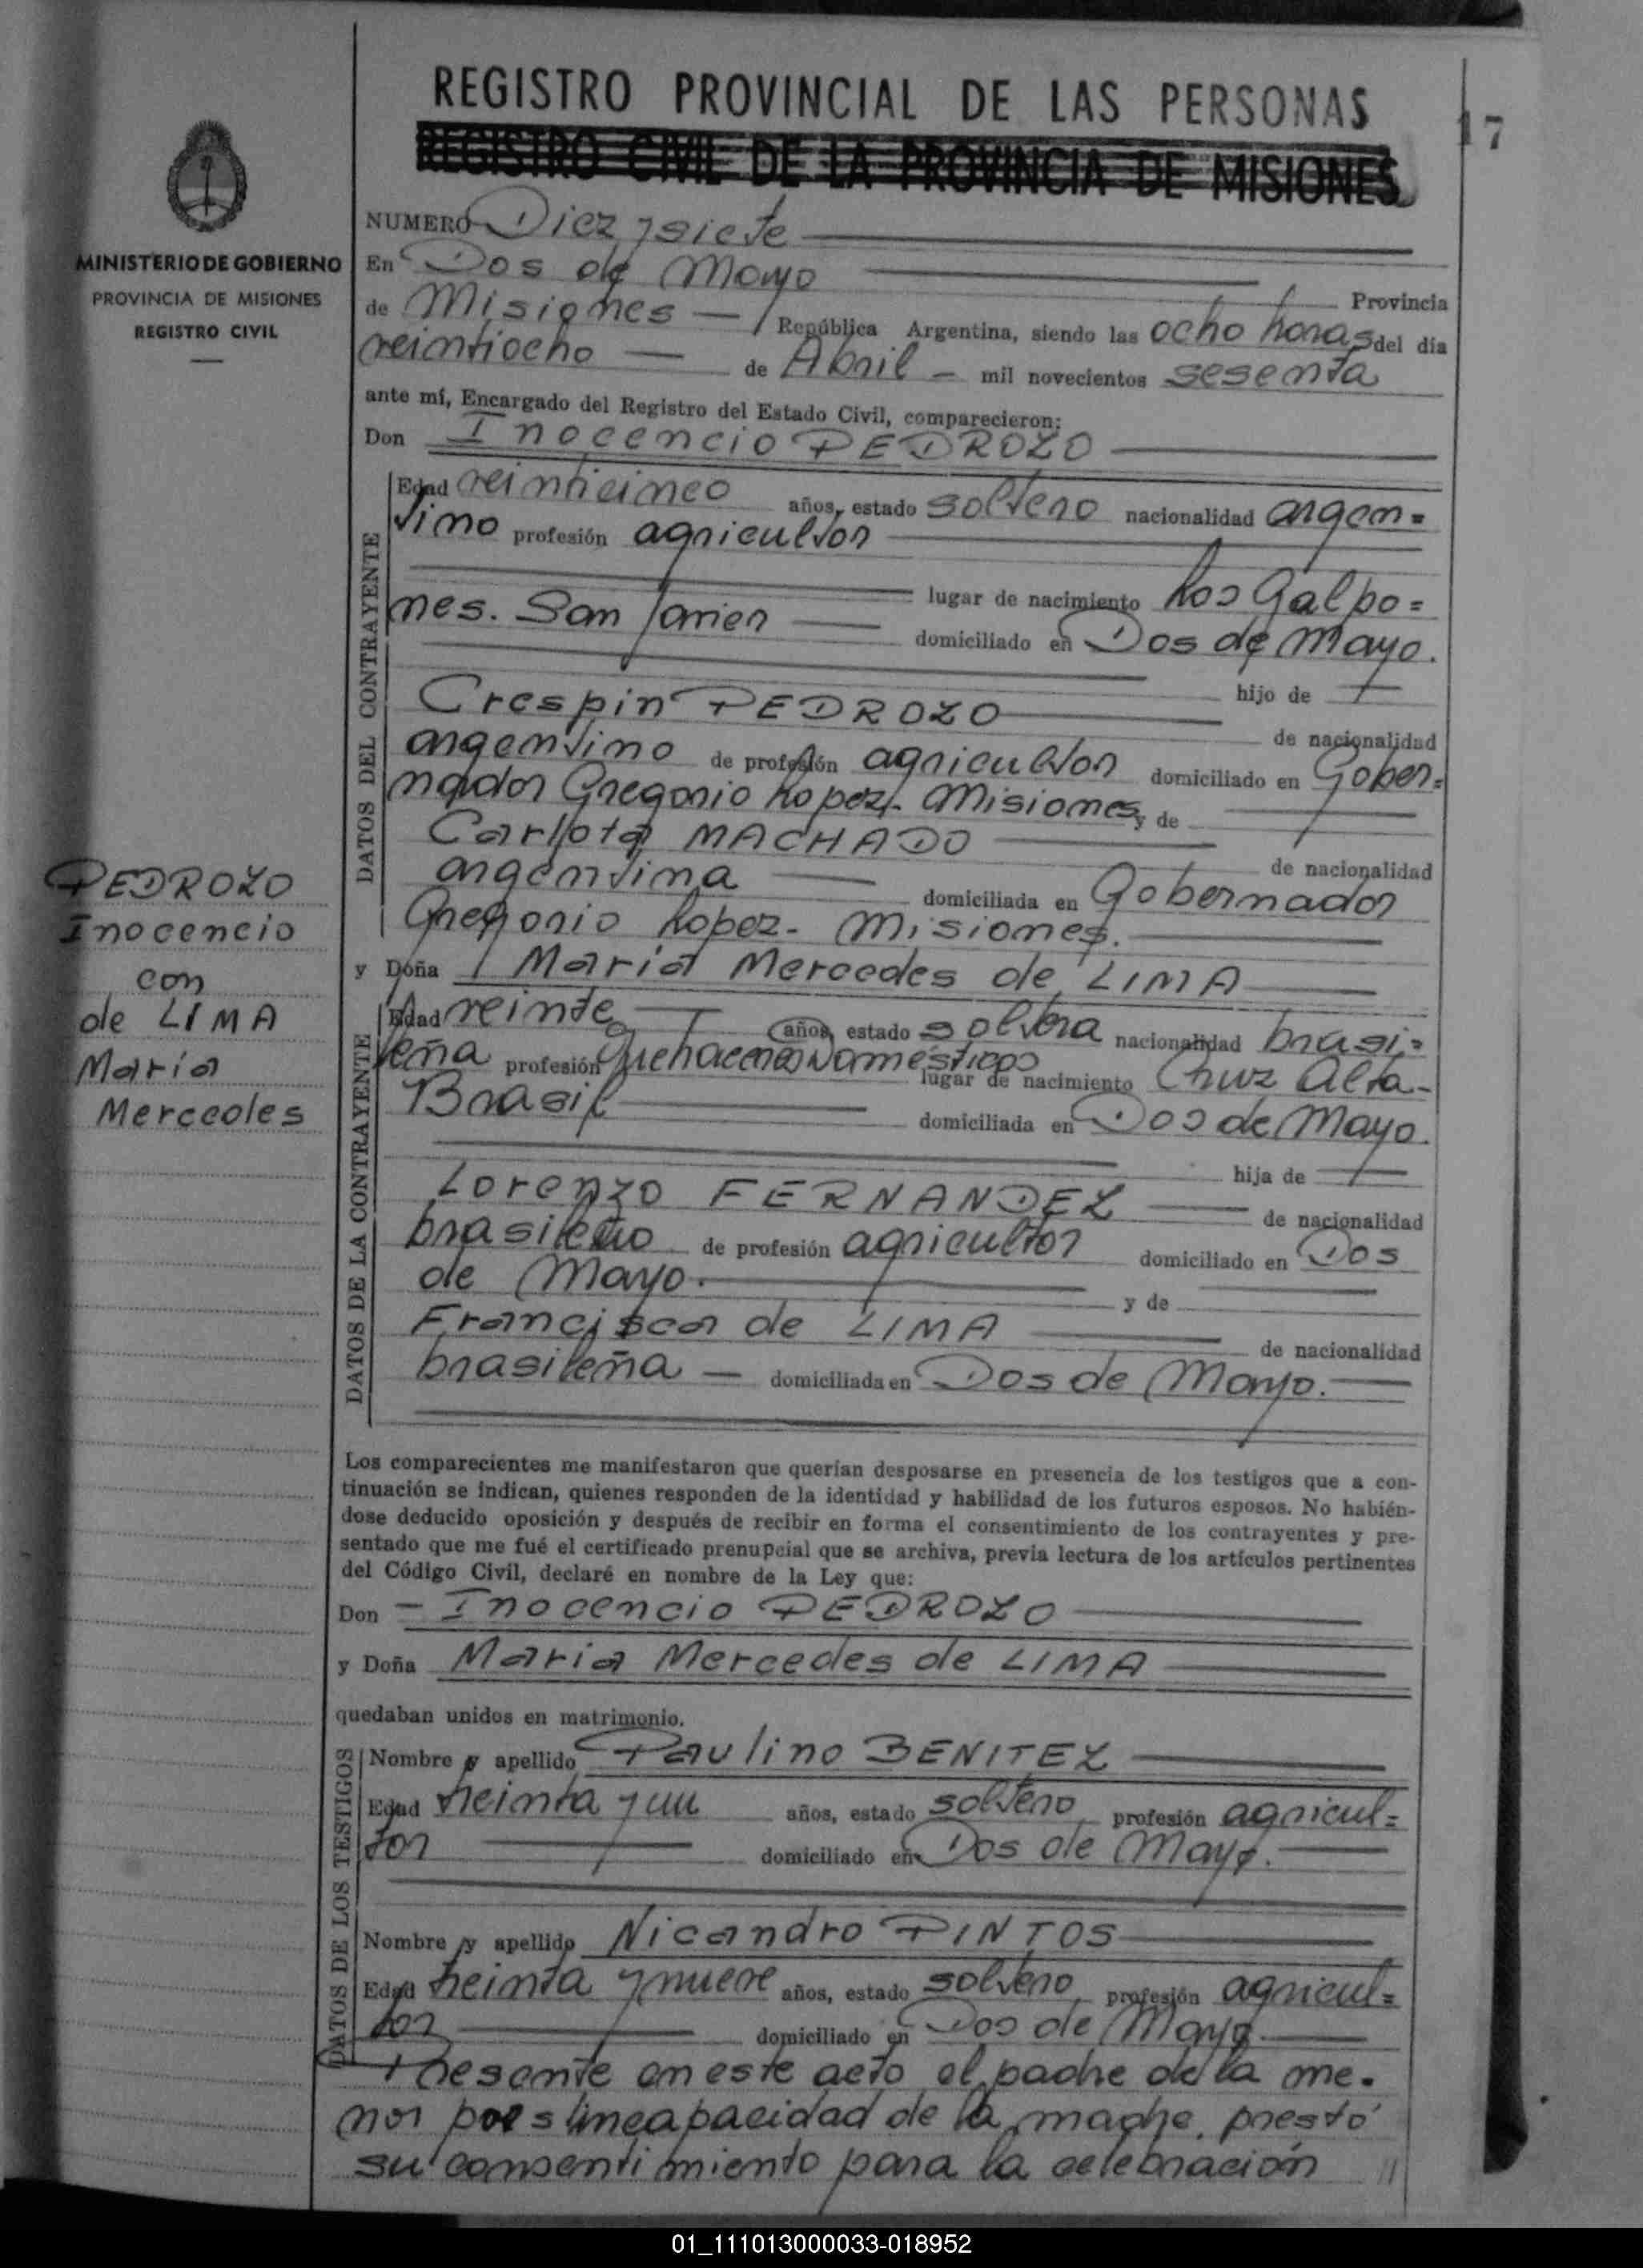 REGISTRO PROVINCIAL DE LAS PERSONAS
17
REGISTRO CIVIL DE LA PROVINCIA DE MISIONES
MINISTERIO DE GOBIERNO
PROVINCIA DE MISIONES
REGISTRO CIVIL
NUMERO Diez y siete
En Dos de Mayo
Provincia
de Misiones República Argentina, siendo las ocho horas del día
veintiocho de Abril mil novecientos sesenta
ante mí, Encargado del Registro del Estado Civil, comparecieron:
Don Inocencio PEDROZO
DATOS DEL CONTRAYENTE
Edad veinticinco años, estado soltero nacionalidad argen=
tino profesión agricultor
lugar de nacimiento Los Galpo=
nes. San Javier domiciliado en Dos de Mayo.
hijo de
Crespin PEDROZO
de nacionalidad
argentino de profesión agricultor domiciliado en Gober=
nador Gregorio Lopez. Misiones, y de
Carlota MACHADO
de nacionalidad
argentina domiciliada en Gobernador
Gregorio Lopez. Misiones.
PEDROZO
Inocencio
con
de LIMA
María
Mercedes
y Doña María Mercedes de LIMA
DATOS DE LA CONTRAYENTE
Edad veinte años, estado soltera nacionalidad brasi=
leña profesión Quehaceres domésticos
lugar de nacimiento Cruz Alta-
Brasil domiciliada en Dos de Mayo.
hija de
Lorenzo FERNANDEZ
de nacionalidad
brasileño de profesión agricultor domiciliado en Dos
de Mayo.
y de
Francisca de LIMA
de nacionalidad
brasileña domiciliada en Dos de Mayo.
Los comparecientes me manifestaron que querían desposarse en presencia de los testigos que a con-
tinuación se indican, quienes responden de la identidad y habilidad de los futuros esposos. No habién-
dose deducido oposición y después de recibir en forma el consentimiento de los contrayentes y pre-
sentado que me fué el certificado prenupcial que se archiva, previa lectura de los artículos pertinentes
del Código Civil, declaré en nombre de la Ley que:
Don Inocencio PEDROZO
y Doña María Mercedes de LIMA
quedaban unidos en matrimonio.
DATOS DE LOS TESTIGOS
Nombre y apellido Paulino BENITEZ
Edad treinta y un años, estado soltero profesión agricul=
tor domiciliado en Dos de Mayo.
Nombre y apellido Nicandro PINTOS
Edad treinta y nueve años, estado soltero profesión agricul=
tor domiciliado en Dos de Mayo.
Presente en este acto el padre de la me.
nor incapacidad de la madre, prestó
su consentimiento para la celebración //
01_111013000033-018952